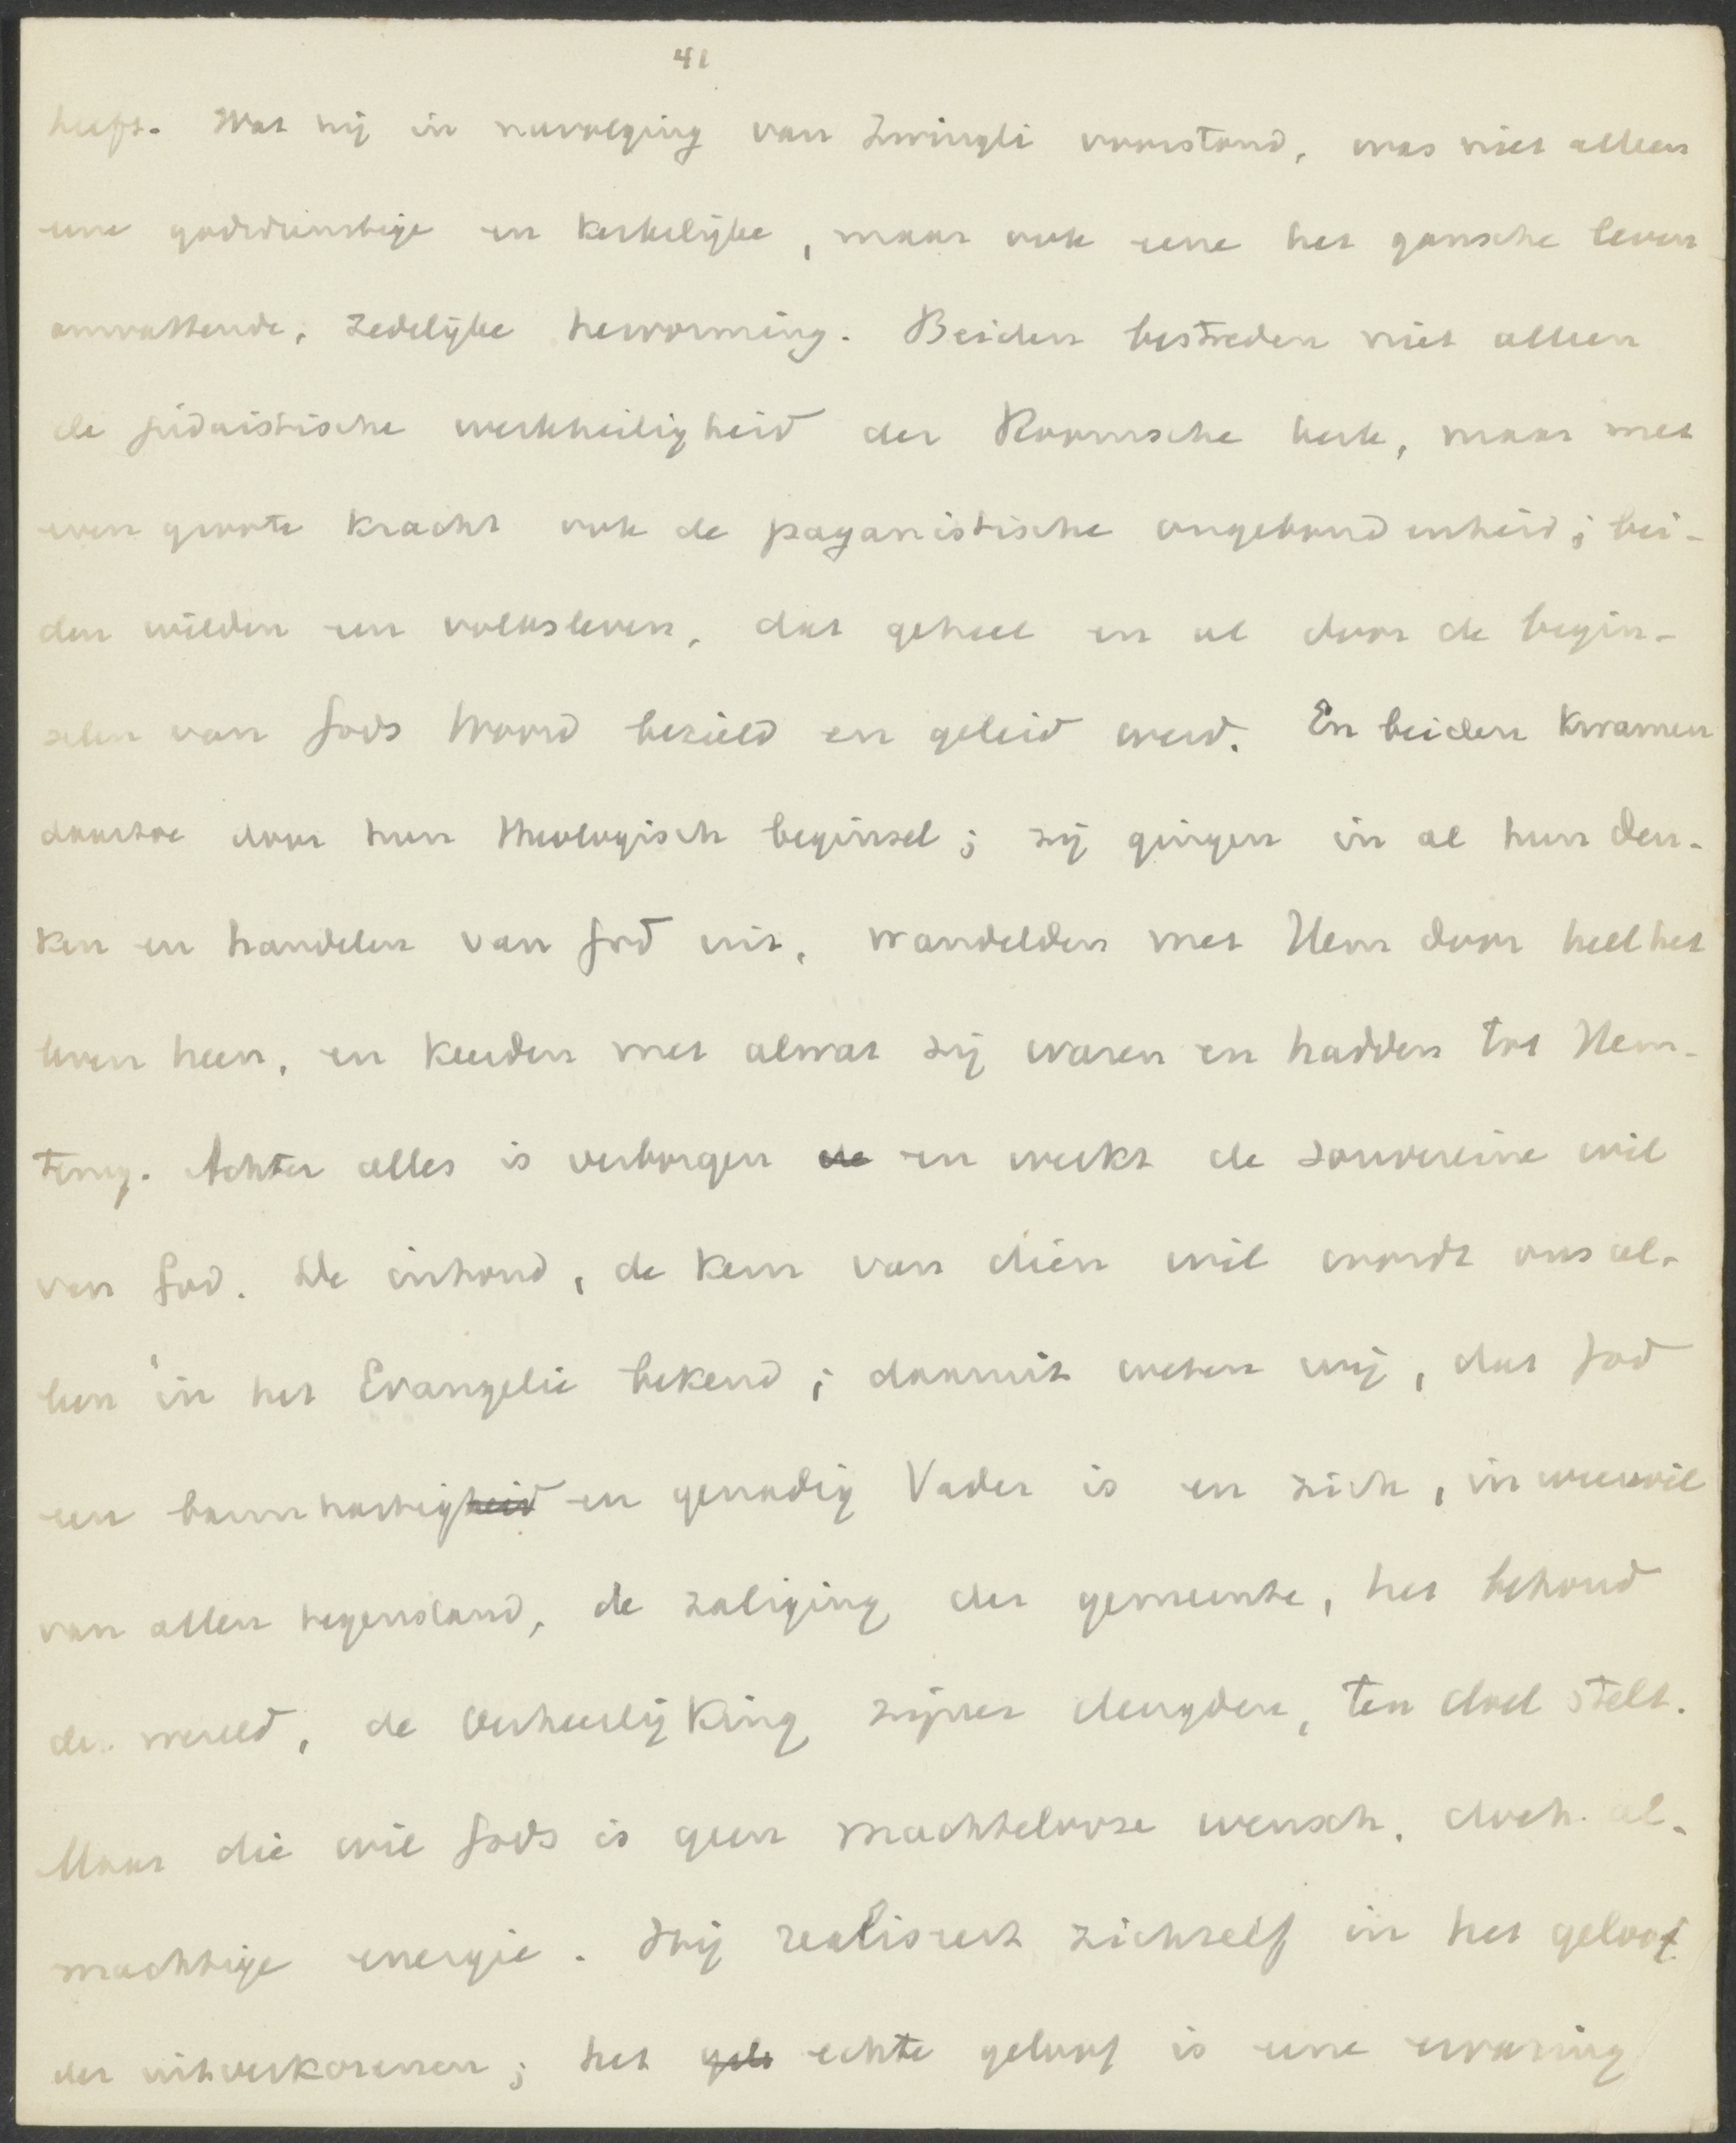 41
heeft. Wat hij in navolging van Zwingli voorstond, was niet alleen
eene godsdienstige en kerkelijke, maar ook eene het gansche leven
omvattende, zedelijke hervorming. Beiden bestreden niet alleen
de judaistische werkheiligheid der Roomsche kerk, maar met
even groote kracht ook de paganistische ongebondenheid; bei-
den wilden een volksleven, dat geheel en al door de begin-
selen van Gods Woord bezield en geleid werd. En beiden kwamen
daartoe door hun theologisch beginsel; zij gingen in al hun den-
ken en handelen van God uit, wandelden met Hem door heel het
leven heen, en keerden met alwat zij waren en hadden tot Hem
terug. Achter alles is verborgen de en werkt de souvereine wil
van God. De inhoud, de kern van dien wil wordt ons al-
leen in het Evangelie bekend; daaruit weten wij, dat God
een barmhartigheid en genadig Vader is en zich, in weerwil
van allen tegenstand, de zaliging der gemeente, het behoud
der wereld, de verheerlijking zijner deugden, ten doel stelt.
Maar die wil Gods is geen machtelooze wensch, doch al-
machtige energie. Hij realiseert zichzelf in het geloof
der uitverkorenen; het gelo echte geloof is eene ervaring